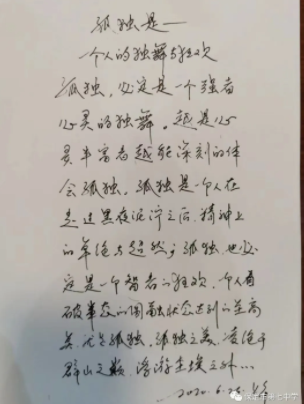 孤独是——
一个人的独舞与狂欢
孤独,必定是一个强者
心灵的独舞。越是心
灵丰富者越能深刻的体
会孤独。孤独是一个人在
走过黑夜泥泞之后,精神上
的卓绝与超然;孤独,也必
定是一个智者的狂欢,个人看
破事态的圆融状态达到的至高
美,优先孤独。孤独之美,凌绝于
群山之巅,浮游尘埃之外...
2020.6.25